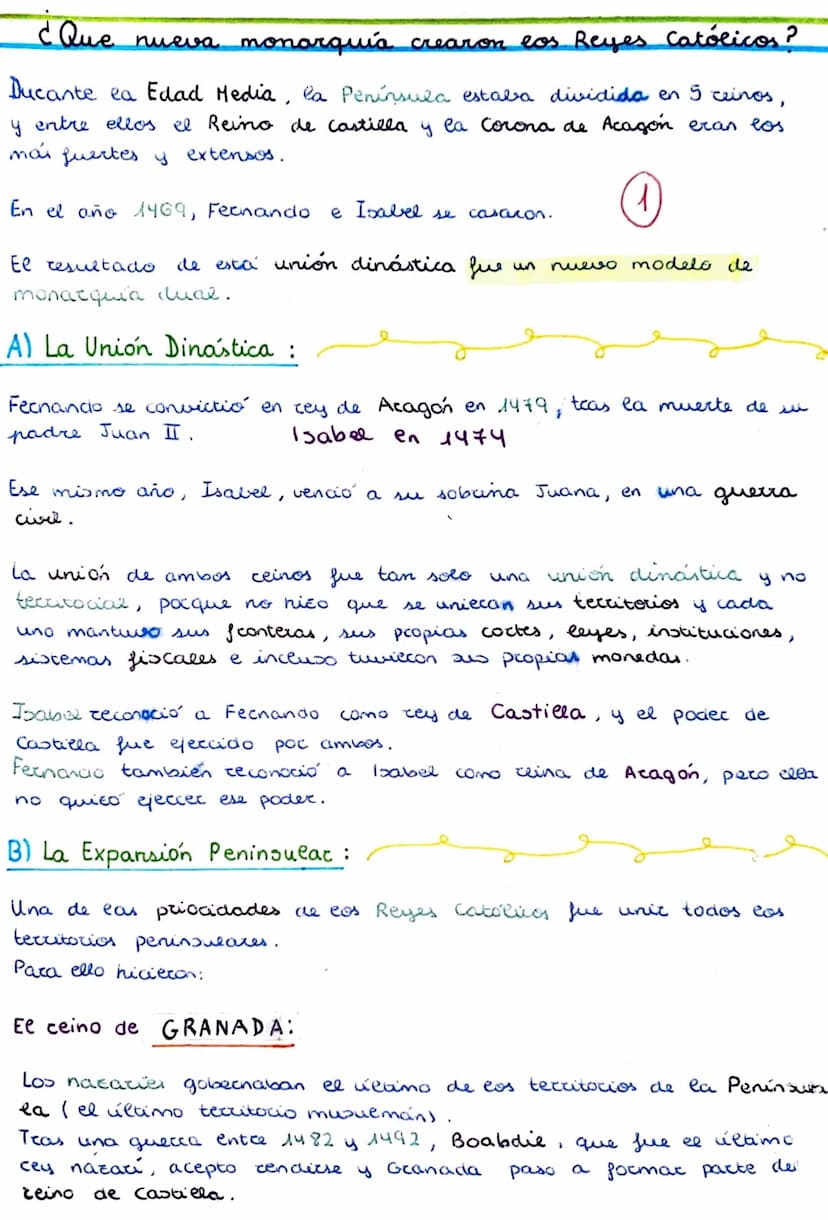 ¿Que nueva monarquía crearon los Reyes Católicos?
Durante la Edad Media, la Península estaba dividida en 5 reinos,
y entre ellos el Reino de Castilla y la Corona de Aragón eran los
más fuertes y extensos.
En el año 1469, Fernando e Isabel se casaron.
1
El resultado de está unión dinástica fue un nuevo modelo de
monarquía dual.
A) La Unión Dinástica :
Fernando se convirtió en rey de Aragón en 1479, tras la muerte de su
padre Juan II.
Isabel en 1474
Ese mismo año, Isabel, venció a su sobrina Juana, en una guerra
civil.
La unión de ambos reinos fue tan solo una unión dinástica y no
territorial, porque no hizo que se unieran sus territorios y cada
uno mantuvo sus fronteras, sus propias cortes, leyes, instituciones,
sistemas fiscales e incluso tuvieron sus propias monedas.
Isabel reconoció a Fernando como rey de Castilla, y el poder de
Castilla fue ejercido por ambos.
Fernando también reconoció a Isabel como reina de Aragón, pero ella
no quiso ejercer ese poder.
B) La Expansión Peninsular :
Una de las prioridades de los Reyes Católicos fue unir todos los
territorios peninsulares.
Para ello hicieron:
El reino de GRANADA:
Los nazaríes gobernaban el último de los territorios de la Penínsu
la (el último territorio musulmán).
Tras una guerra entre 1482 y 1492, Boabdil, que fue el último
rey nazarí, acepto rendirse y Granada paso a formar parte del
reino de Castilla.